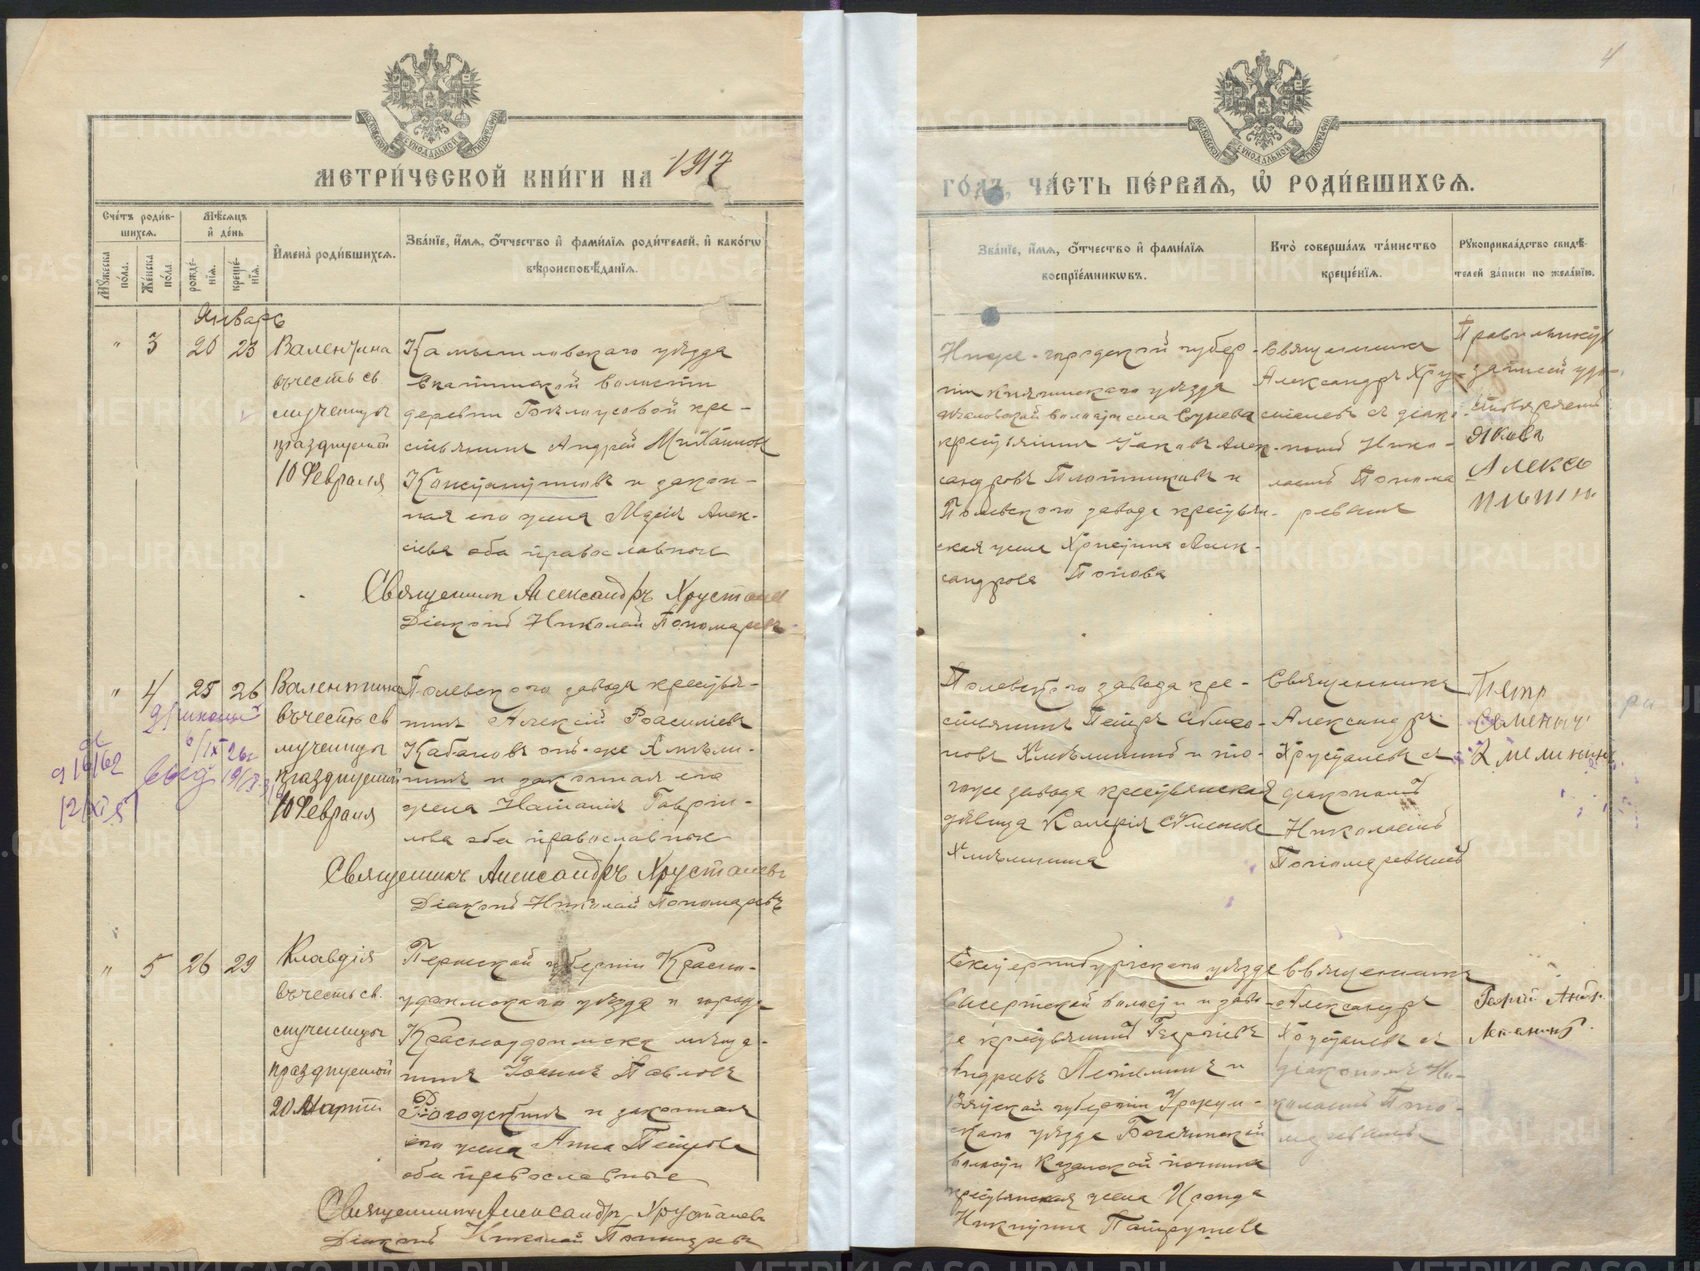 4
МЕТРИ́ЧЕСКОЙ КНИ́ГИ НА 1917
ГО́ДЪ, ЧА́СТЬ ПЕ́РВАЯ, Ѡ҆ РОДИ́ВШИХСЯ.
Сче́тъ роди́в-
шихся.
Мѣ́сяцъ
и҆ де́нь
Мꙋ́жеска
по́ла.
Же́нска
по́ла.
рожде́-
нїѧ.
креще́-
нїѧ.
И҆мена̀ роди́вшихся.
Зва́нїе, и҆́мя, ѻ҆́тчество и҆ фами́лїя роди́телей, и҆ како́гѡ
вѣроисповѣ́данїя.
Зва́нїе, и҆́мя, ѻ҆́тчество и҆ фами́лїя
воспрїе́мникѡвъ.
Кто̀ соверша́лъ та́инство
креще́нїя.
Рꙋкоприкла́дство свидѣ́-
телей за́писи по жела́нїю.
Январь
" 3 20 23
Валентина
въ честь св
мученицы
празднуемой
10 Февраля
Камышловскаго уѣзда
волости
деревни Бѣлоусовой кре-
стьянинъ Андрей Михайловъ
Константиновъ и закон-
ная его жена Марія Алек-
сіева оба православные
Священникъ Александръ Хрусталевъ
Діаконъ Николай Пономаревъ
Ниже-городской губер-
ніи Княгининскаго уѣзда
волости села Сунева
крестьянинъ Іаковъ Алек-
сандровъ Плотниковъ и
Полевского завода крестьян-
ская жена Христина Алек-
сандрова Попова
Священникъ
Александръ Хру-
сталевъ съ діако-
номъ Нико-
лаемъ Понома
ревымъ
" 4 25 26
Валентина
въ честь св
мученицы
празднуемой
10 Февраля
Полевского завода крестья-
нинъ Алексій Васильевъ
Кабановъ онъ-же Хмѣли-
нинъ и законная его
жена Наталія Гаврии-
лова оба православные
Священникъ Александръ Хрусталевъ
Діаконъ Николай Пономаревъ
Полевского завода кре-
стьянинъ Петръ Симео-
новъ Хмѣлининъ и то-
гоже завода крестьянская
дѣвица Калерія Симеонова
Хмѣлинина
Священникъ
Александръ
Хрусталевъ съ
діакономъ
Николаемъ
Пономаревымъ
Петръ
Семеныч
Хмелининъ
" 5 26 29
Клавдія
въ честь св.
мученицы
празднуемой
20 Марта
Пермской губерніи Красно-
уфимскаго уѣзда и города
Красноуфимска мѣща-
нинъ Іоаннъ Павловъ
и законная
его жена Анна Петрова
оба православные
Священникъ Александръ Хрусталевъ
Діаконъ Николай Пономаревъ
Екатеринбургскаго уѣзда
Сысертской волости и заво-
да крестьянинъ Георгіевъ
Андреевъ и
Вятской губерніи Уржум-
скаго уѣзда
волости Казанской починка
крестьянская жена Ираида
Никитина Патрушева
Священникъ
Александръ
Хрусталевъ съ
діакономъ Ни-
колаемъ Поно-
маревымъ